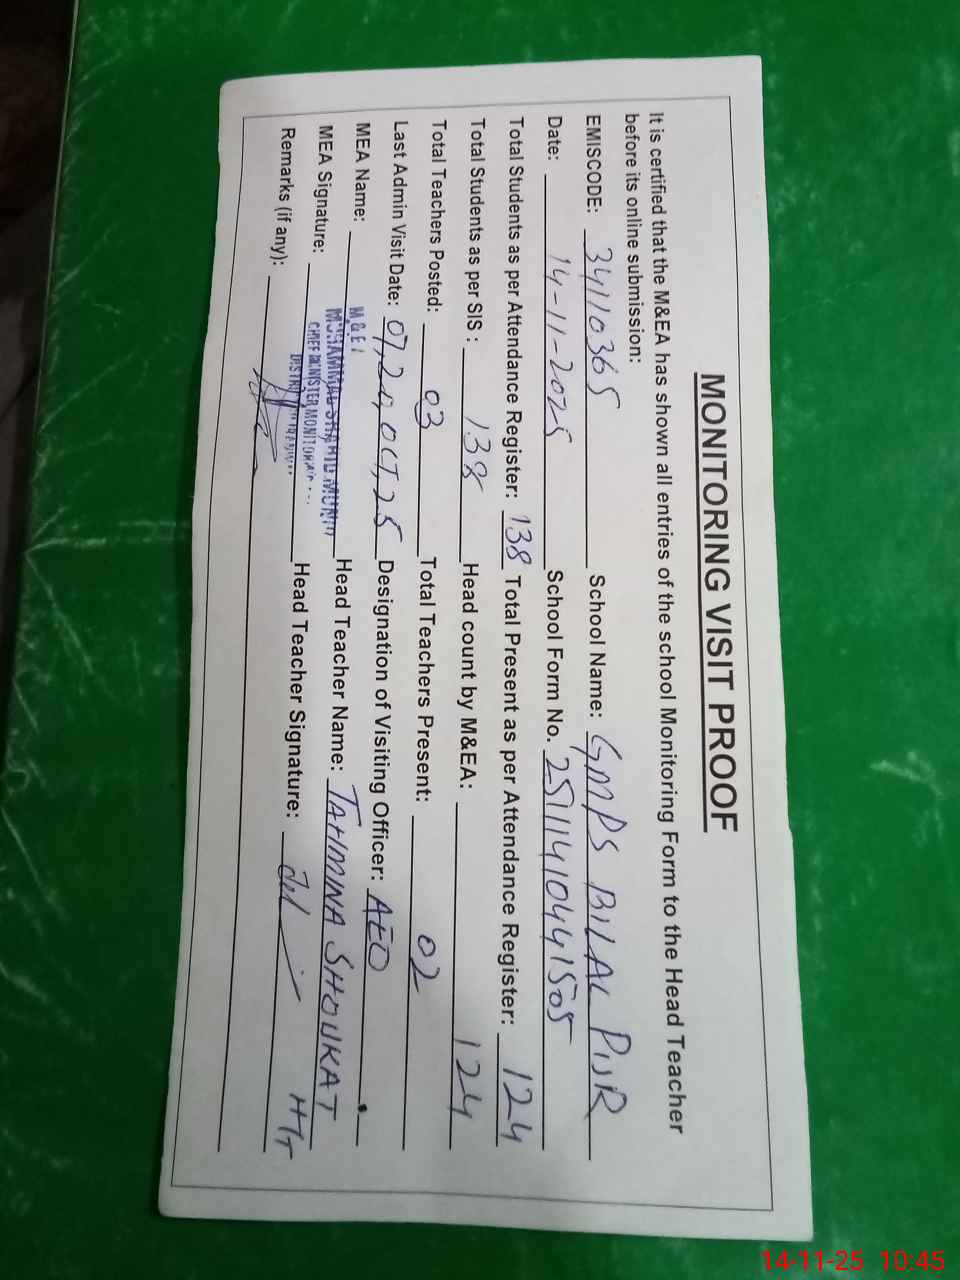 MONITORING VISIT PROOF
It is certified that the M&EA has shown all entries of the school Monitoring Form to the Head Teacher
before its online submission:
EMISCODE: 34110365 School Name: GMPS BILAL PUR
Date: 14-11-2025 School Form No. 25111410441505
Total Students as per Attendance Register: 138 Total Present as per Attendance Register: 124
Total Students as per SIS : 138 Head count by M&EA: 124
Total Teachers Posted: 03 Total Teachers Present: 02
Last Admin Visit Date: OCT, 25 Designation of Visiting Officer: AEO
MEA Name: Head Teacher Name: TAHMINA SHOUKAT
MEA Signature: CHIEF MINISTER Head Teacher Signature: HT
Remarks (if any):
14-11-25 10:45